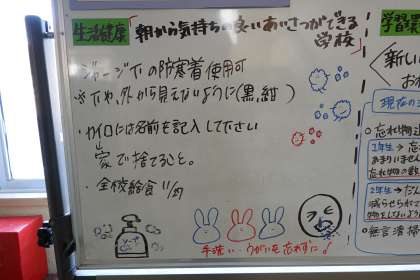 生活健康
朝から気持ちの良いあいさつができる
学校
ジャージ下の防寒着使用可
※下や、外から見えないように(黒,紺)
・カイロには名前を記入して下さい
家で捨てること。
・全校給食
手洗い・うがいを忘れずに!
学習
新しい
現在の
忘れ物
1年生→
あまりいません
忘れ物の数
2年生→
減らせられ
物をしない
無言清掃